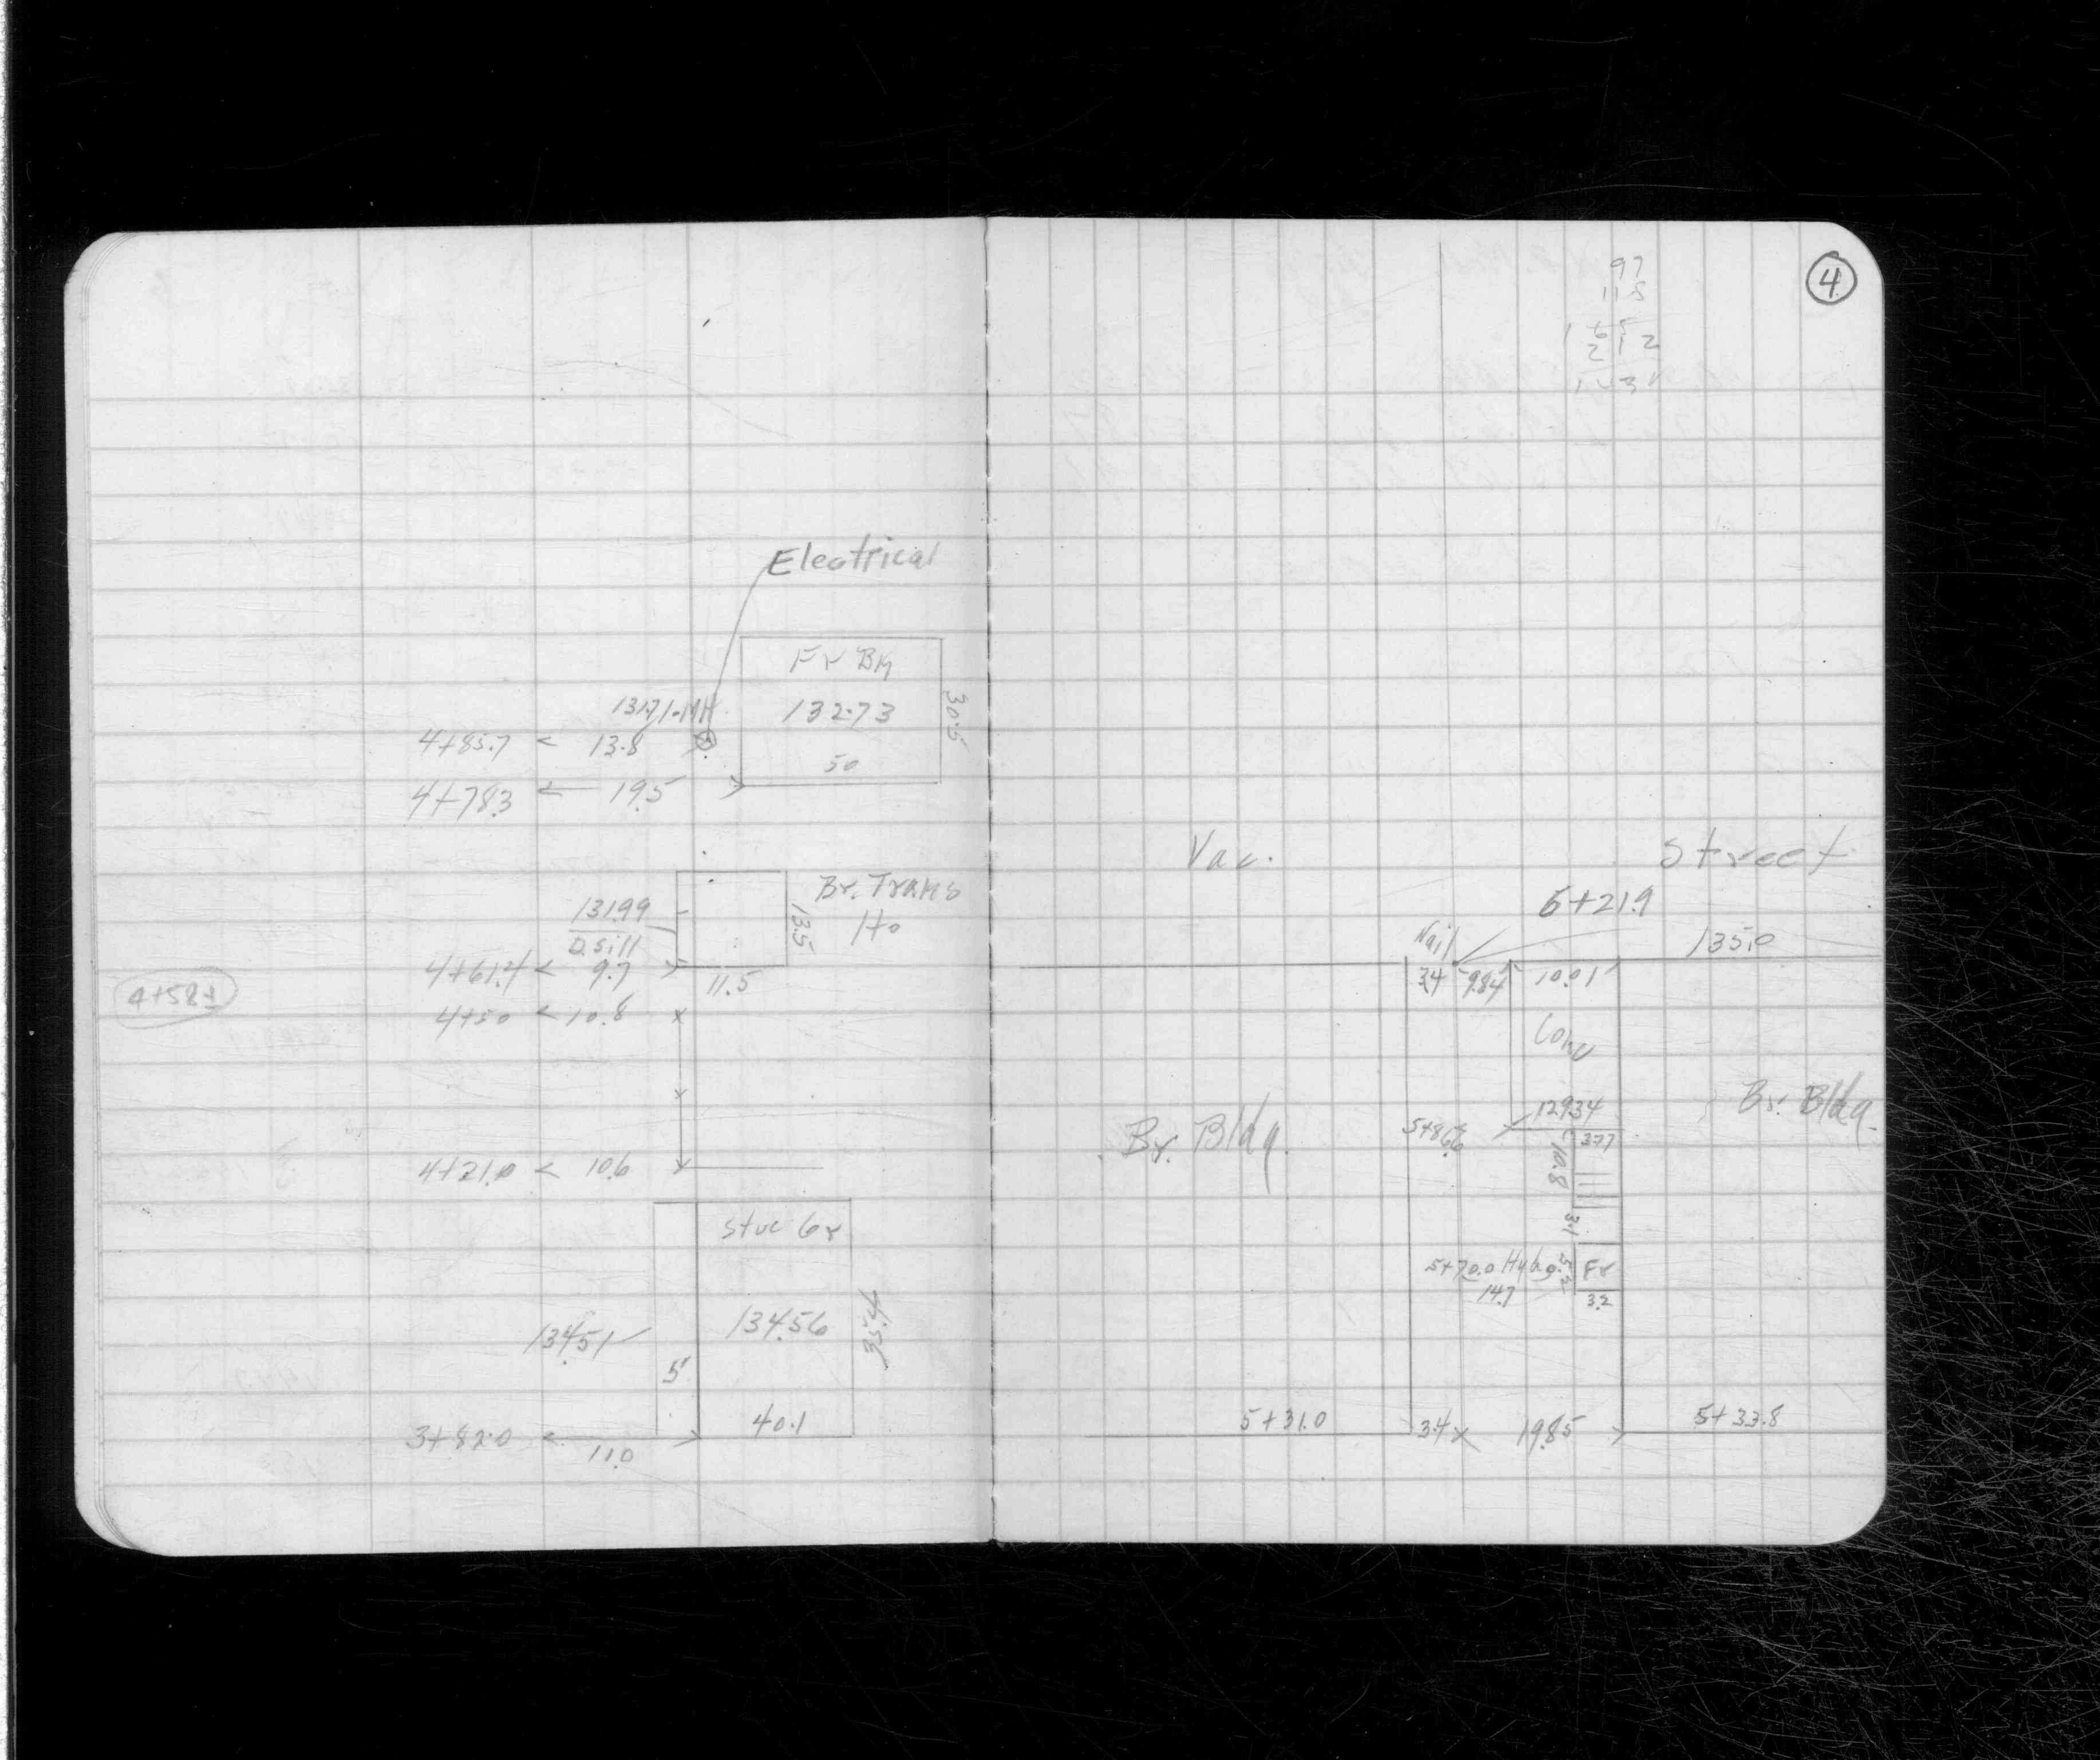 Electrical
Fr Bly
131.71-MH
132.73
30.5
4+85.7 < 13.8
50
4+78.3 ← 19.5
Br. Trans
Ho
131.99
D. Sill
13.5
4+61.4 < 9.7
11.5
4+58±
4+50 < 10.8
4+21.0 < 10.6
Stuc Gr
134.51
134.56
5'
40.1
3+82.0
11.0
4
97
118
Vac.
Street
6+21.9
Nail
135.0
3.4
9.84
10.01
Conc
129.34
5+86.6
3.77
10.8
Br. Bldg.
Br. Bldg.
3.1
5+70.0
5.2
Fr
14.7
3.2
5+31.0
3.4
19.85
5+33.8